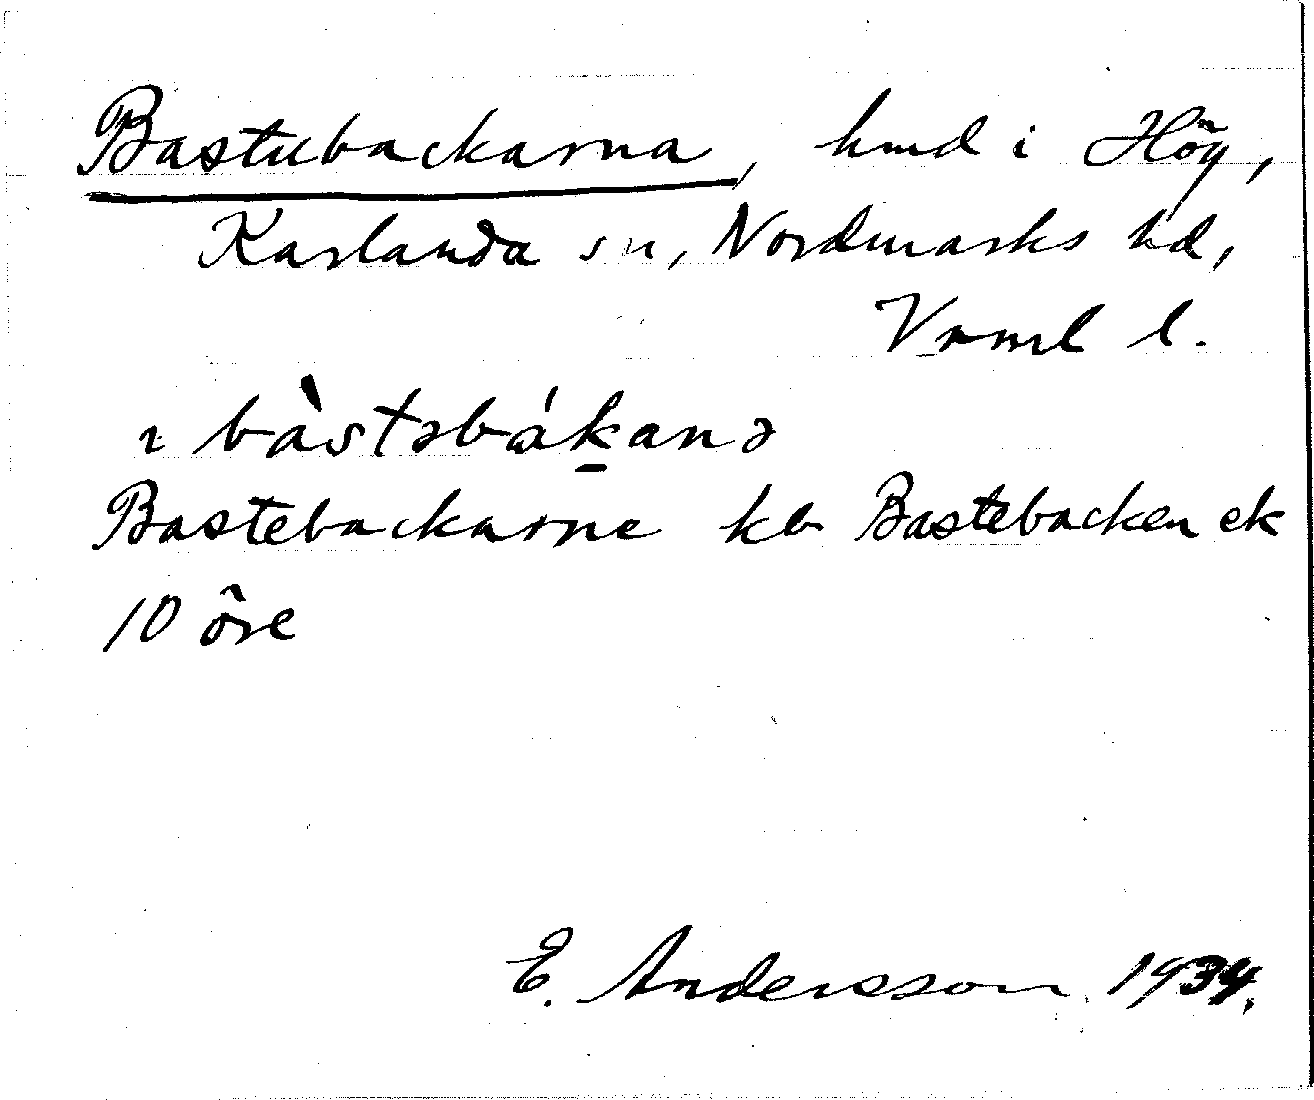 Bastubackarna, hmd i Hög,
Karlanda sn, Nordmarks hd,
Vrml l.
ı bàstəbák̠anə
Bastebackarne kb Bastebacken ek
10 öre
E. Andersson 1934.